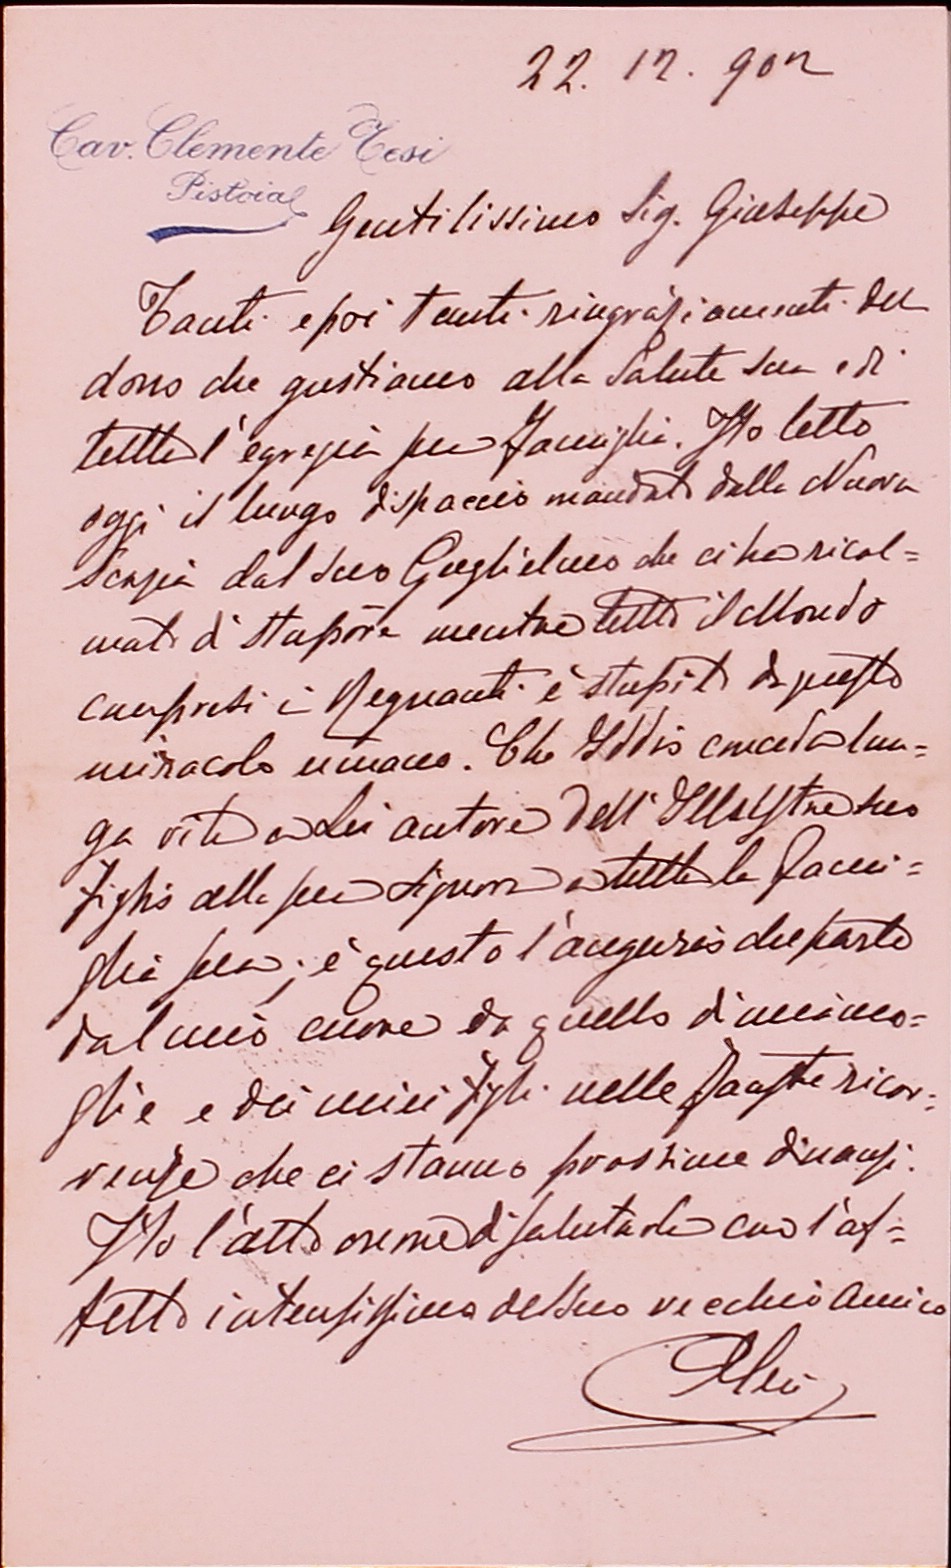 22. 12. 902
Cav. Clemente Tesi
Pistoia
Gentilissimo Sig. Giuseppe
Tanti e poi tanti ringraziamenti del
dono che gustiamo alla Salute sua e di
tutta l'egregia sua Famiglia. Ho letto
oggi il lungo dispaccio mandato dalla Nuova
Scozia dal suo Guglielmo che ci ha ricol=
mati di stupore mentre tutto il Mondo
compresi i Regnanti è stupito da questo
miracolo umano. Che Iddio conceda lun=
ga vita a Lei autore dell'Illustre suo
figlio alla sua Signora a tutta la fami=
glia sua; è questo l'augurio che parte
dal mio cuore da quello di mia mo=
glie e dei miei figli nelle fauste ricor=
renze che ci stanno prossime dinanzi.
Ho l'alto onore di salutarla con l'af=
fetto intensissimo del suo vecchio amico